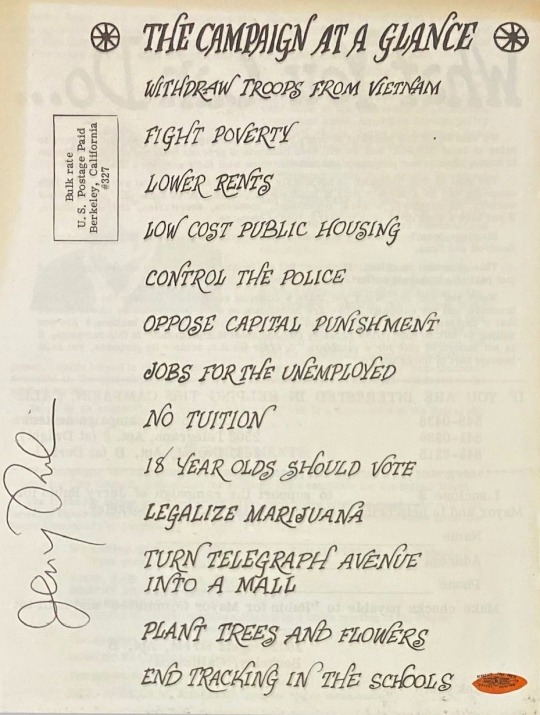 THE CAMPAIGN AT A GLANCE
WITHDRAW TROOPS FROM VIETNAM
FIGHT POVERTY
Bulk rate
U. S. Postage Paid
Berkeley, California
#327
LOWER RENTS
LOW COST PUBLIC HOUSING
CONTROL THE POLICE
OPPOSE CAPITAL PUNISHMENT
JOBS FOR THE UNEMPLOYED
NO TUITION
18 YEAR OLDS SHOULD VOTE
LEGALIZE MARIJUANA
TURN TELEGRAPH AVENUE
INTO A MALL
PLANT TREES AND FLOWERS
END TRACKING IN THE SCHOOLS